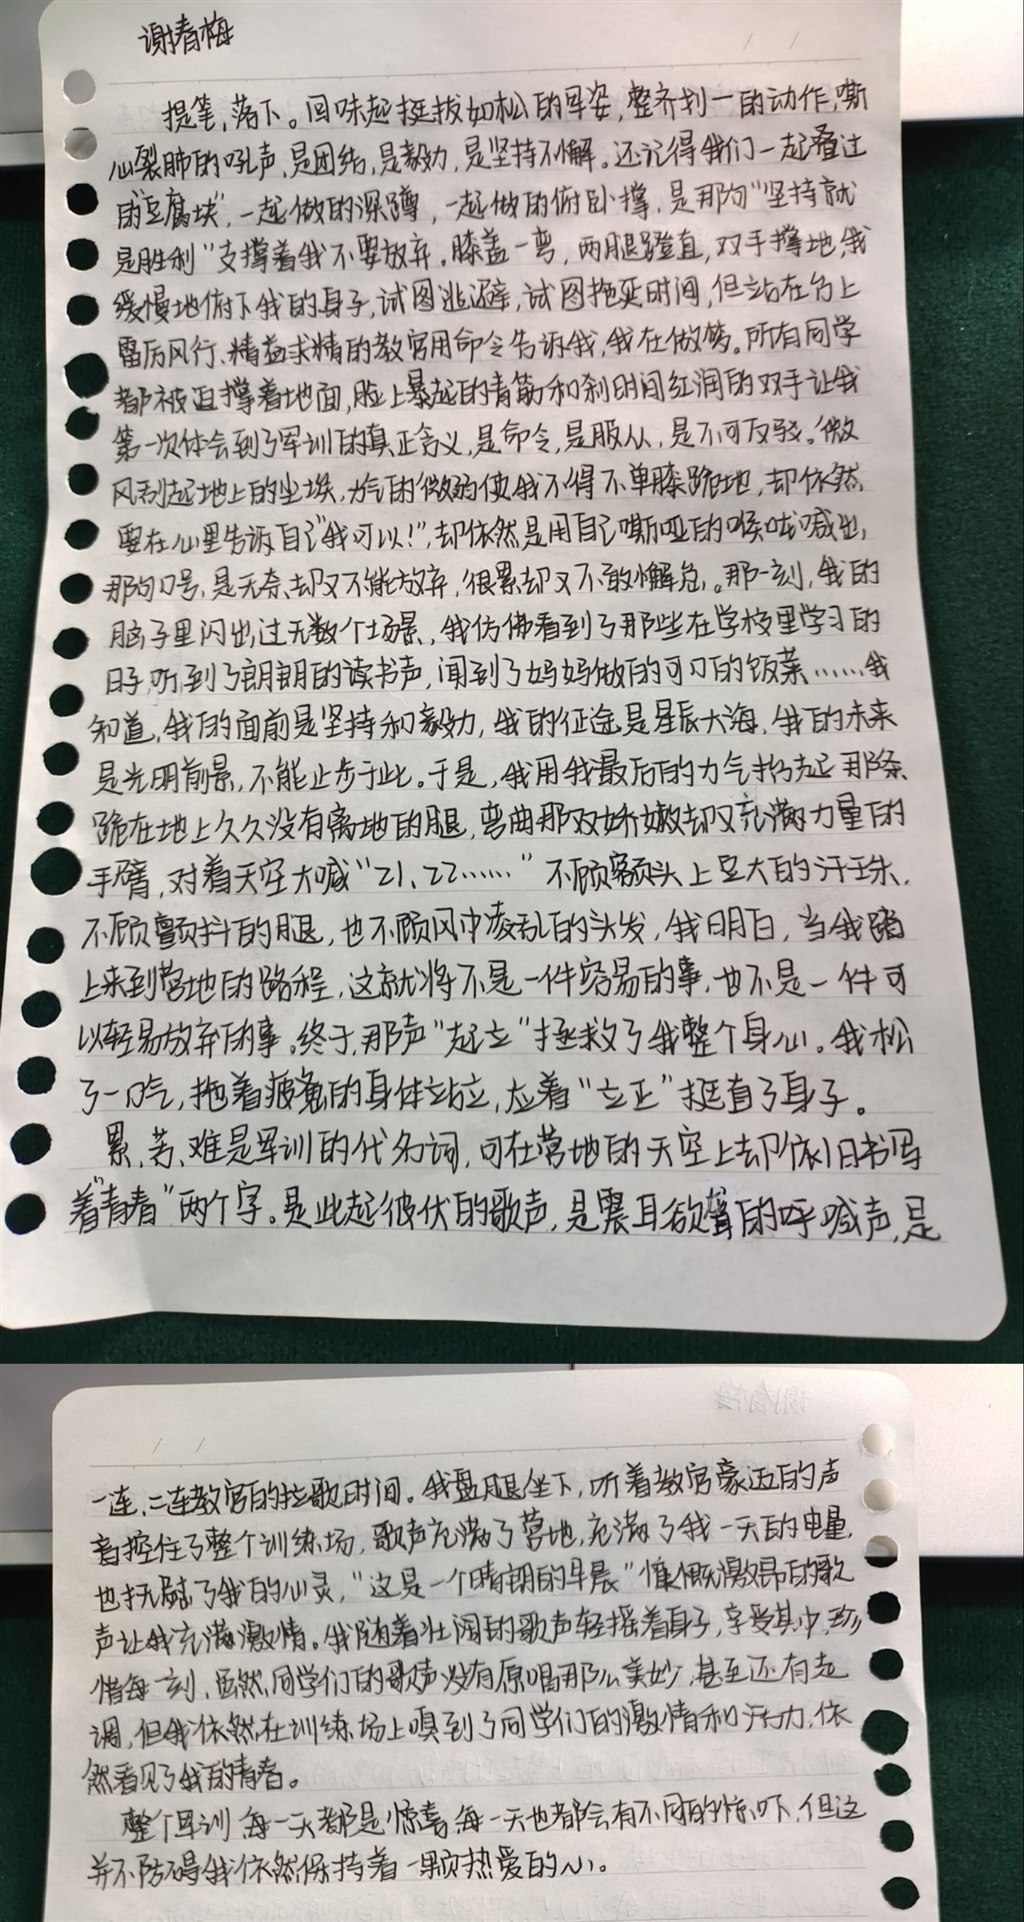 谢春梅
提笔,落下。回味起挺拔如松的军姿,整齐划一的动作,嘶
心裂肺的吼声,是团结,是毅力,是坚持不懈。还记得我们一起叠过
的“豆腐块”,一起做的深蹲,一起做的俯卧撑,是那句“坚持就
是胜利”支撑着我不要放弃。膝盖一弯,两腿蹬直,双手撑地,我
缓慢地俯下我的身子,试图逃避,试图拖延时间,但站在台上
雷厉风行、精益求精的教官用命令告诉我,我在做梦。所有同学
都被迫撑着地面,脸上暴起的青筋和刹那间红润的双手让我
第一次体会到了军训的真正含义,是命令,是服从,是不可反驳。微
风刮起地上的尘埃,力气的微弱使我不得不单膝跪地,却依然
要在心里告诉自己“我可以!”,却依然是用自己嘶哑的喉咙喊出,
那句口号,是无奈却又不能放弃,很累却又不敢懈怠。那一刻,我的
脑子里闪出过无数个场景,我仿佛看到了那些在学校里学习的
日子,听到了朗朗的读书声,闻到了妈妈做的可口的饭菜……我
知道,我的面前是坚持和毅力,我的征途是星辰大海,我的未来
是光明前景,不能止步于此。于是,我用我最后的力气抬起那条
跪在地上久久没有离地的腿,弯曲那双娇嫩却又充满力量的
手臂,对着天空大喊“21、22……”不顾额头上豆大的汗珠,
不顾颤抖的腿,也不顾风中凌乱的头发,我明白,当我踏
上来到营地的路程,这就将不是一件容易的事,也不是一件可
以轻易放弃的事。终于,那声“起立”拯救了我整个身心。我松
了一口气,拖着疲惫的身体站立,应着“立正”挺直了身子。
累、苦、难是军训的代名词,可在营地的天空上却依旧书写
着“青春”两个字。是此起彼伏的歌声,是震耳欲聋的呼喊声,是
一连、二连教官的拉歌时间。我盘腿坐下,听着教官豪迈的声
音控住了整个训练场,歌声充满了营地,充满了我一天的电量,
也抚慰了我的心灵,“这是一个晴朗的早晨”慷慨激昂的歌
声让我充满激情。我随着壮阔的歌声轻摇着身子,享受其中,珍
惜每一刻,虽然,同学们的歌声没有原唱那么美妙,甚至还有走
调,但我依然在训练场上嗅到了同学们的激情和活力,依
然看见了我的青春。
整个军训,每一天都是惊喜,每一天也都会有不同的惊吓,但这
并不防碍我依然保持着一颗热爱的心。